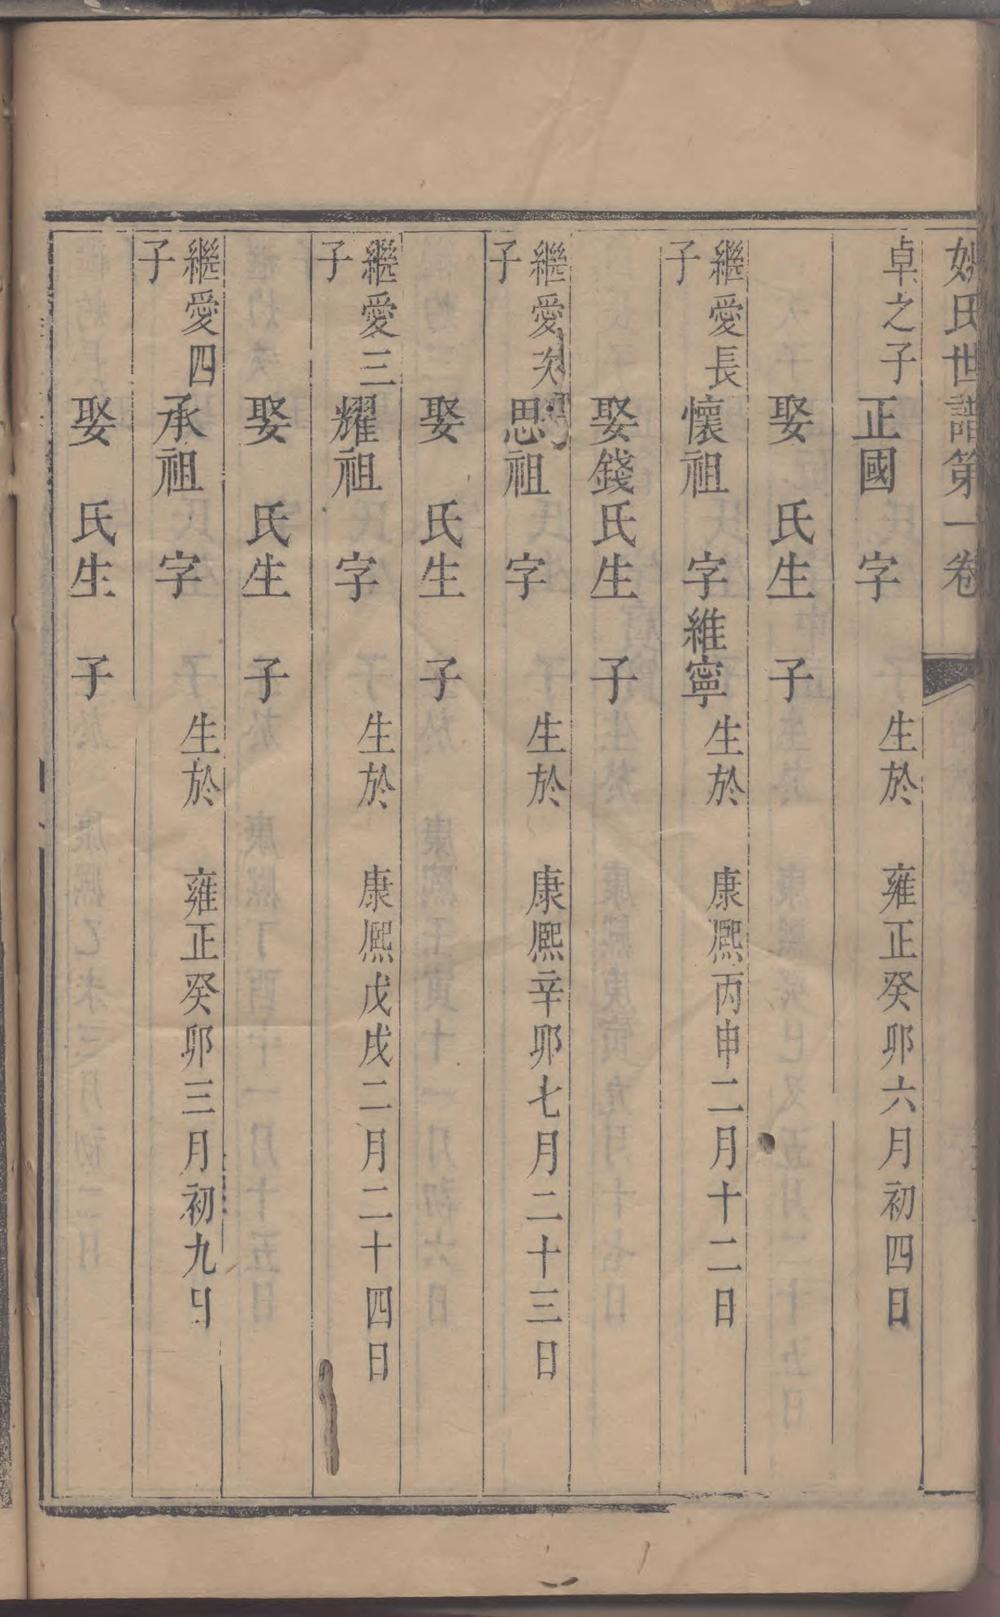 姚氏世譜第一卷
卓之子 正國 字 生於 雍正癸卯六月初四日
娶 氏生 子
繼愛長子 懷祖 字維寧 生於 康熈丙申二月十二日
娶錢氏生 子
繼愛次子 思祖 字 生於 康熈辛卯七月二十三日
娶 氏生 子
繼愛三子 耀祖 字 生於 康熈戊戌二月二十四日
娶 氏生 子
繼愛四子 承祖 字 生於 雍正癸卯三月初九日
娶 氏生 子